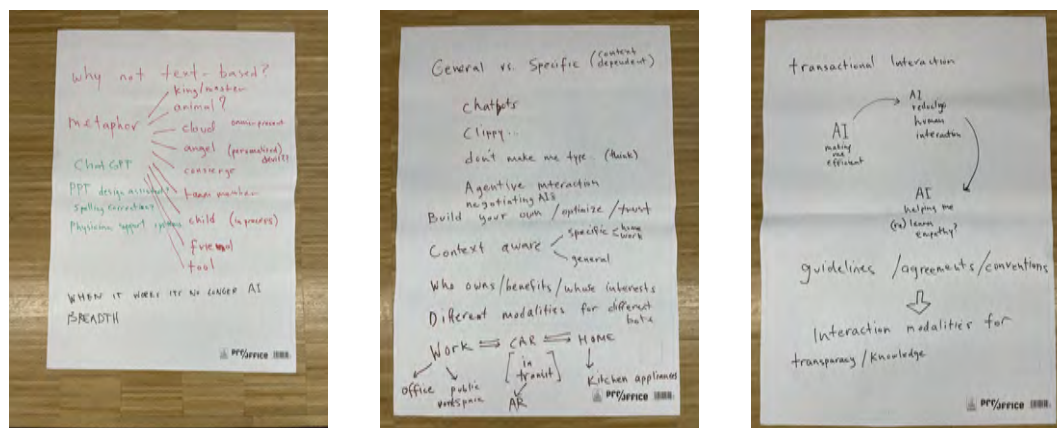 why not text-based?
king/master
animal?
metaphor
cloud omnipresent
angel (personalized) devil?
concierge
ChatGPT
team member
PPT design assistant?
Spelling correction?
child (in process)
Physician support systems
friend
tool
WHEN IT WORKS ITS NO LONGER AI
BREADTH
PRO/OFFICE
General vs. Specific (context dependent)
chatbots
Clippy...
don't make me type (think)
Agentive interaction
negotiating AIs
Build your own /optimize/trust
Context aware
specific
home
work
general
Who owns/benefits/whose interests
Different modalities for different
bots
Work
CAR
HOME
[in transit]
office
public workspace
AR
Kitchen appliances
PRO/OFFICE
transactional Interaction
AI
making
me
efficient
AI
human
interaction
AI
helping me
(re) learn
empathy?
guidelines /agreements/conventions
Interaction modalities for
transparency/knowledge
PRO/OFFICE